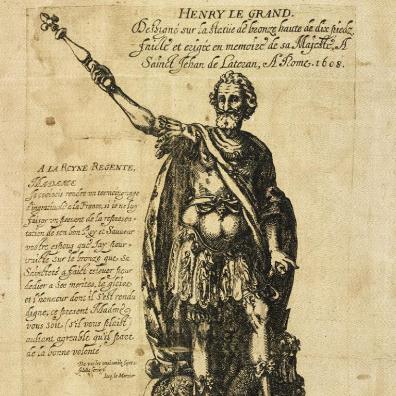 HENRY LE GRAND.
Dessigné sur la statue de bronze haute de dix piedz
faicte et erigée en memoire de sa Majesté, A
Sainct Jehan de Latran, A Rome. 1608.
A LA ROYNE REGENTE,
MADAME
rendre un tesmoignage
d'ingratitude a la France, si je ne luy
faisois un present de la represen-
tation de son bon Roy et Sauveur
vostre espous que j'ay pour-
traicte sur le bronze que sa
Saincteté a faict eslever pour
dedier a ses merites, la gloire
et l'honneur dont il s'est rendu
digne, ce present Madame
vous soit (s'il vous plaist)
autant agreable qu'il part
de la bonne volonté
De vostre
fidelle
Jaq. le Mercier